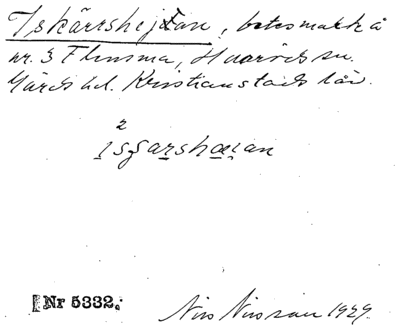 Iskärrshejdan, betesmark å
nr. 3 Flinsma, Huaröds sn.
Gärds hd. Kristianstads län.
2
Nr 5332.
Nils Nilsson 1929.